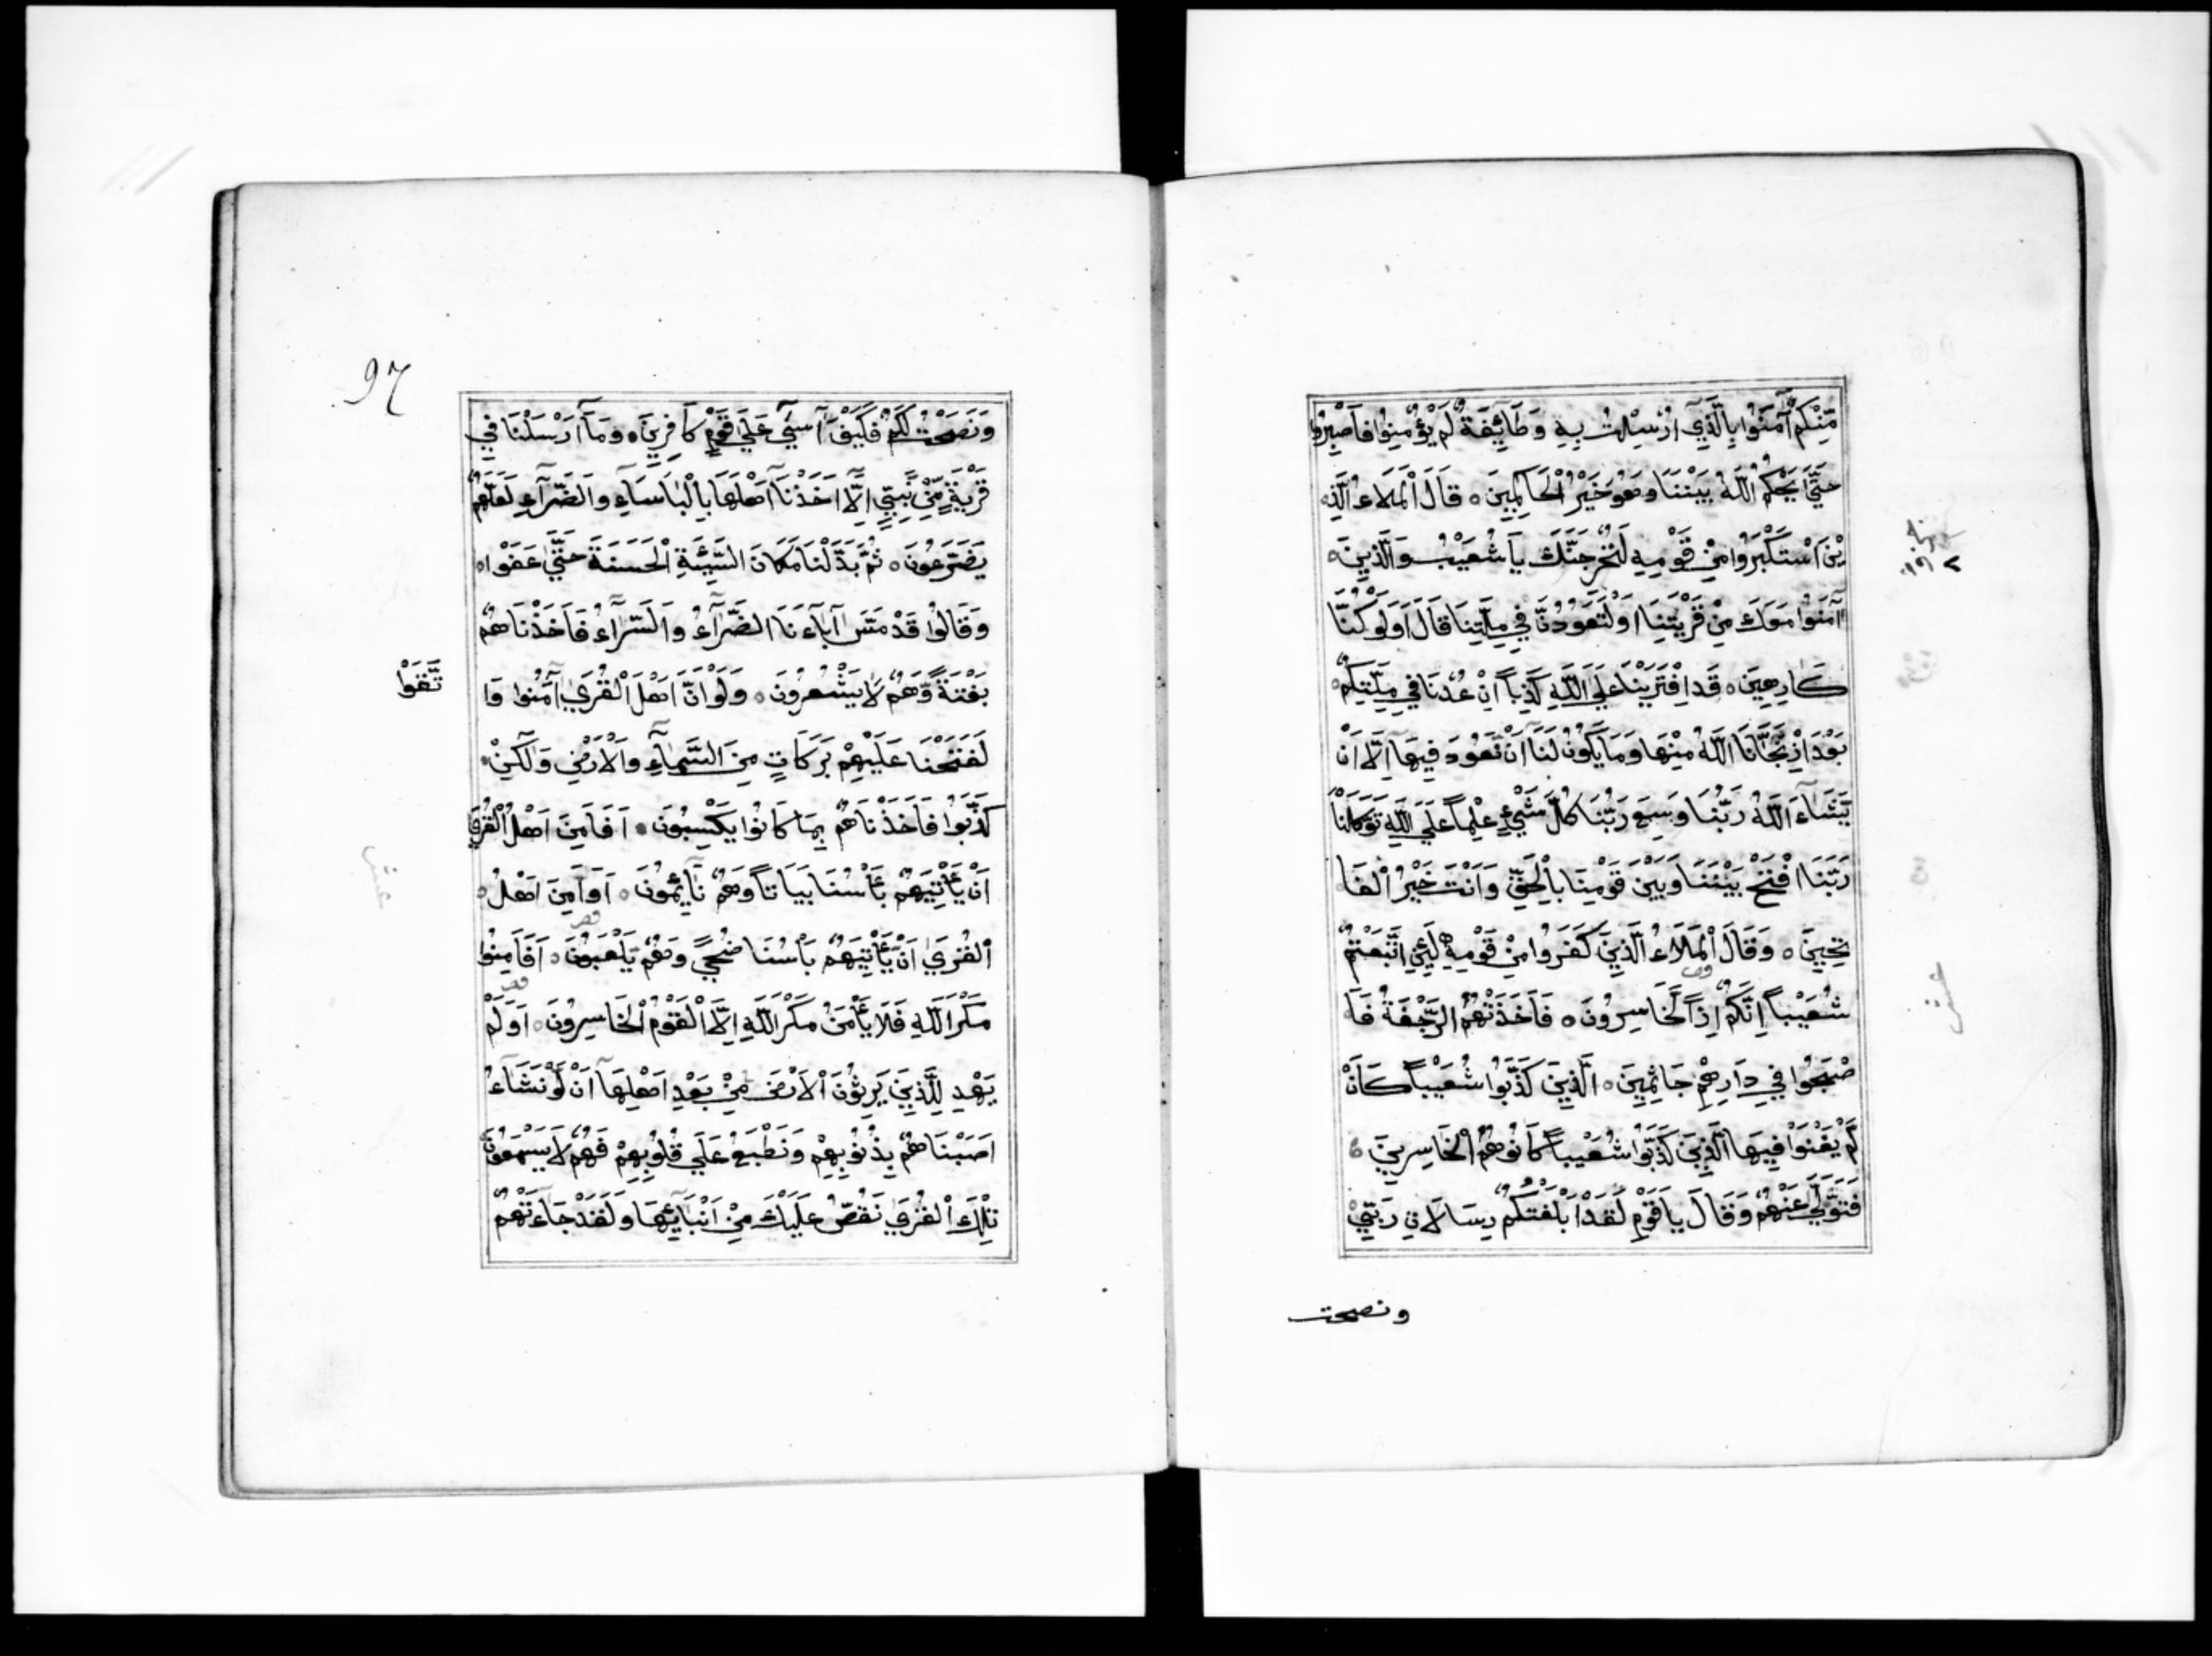 مِّنْكُمْ آمَنُوا بِالَّذِي اُرْسِلْتُ بِهِ وَطَائِفَةٌ لَمْ يُؤْمِنُوا فَاصْبِرُوا
حَتَّى يَحْكُمَ اللَّهُ بَيْنَنَا وَهُوَ خَيْرُ الْحَاكِمِينَ ٥ قَالَ الْمَلَاءُ الَّذِ
يْنَ اسْتَكْبَرُوا مِنْ قَوْمِهِ لَنُخْرِجَنَّكَ يَا شُعَيْبُ وَالَّذِينَ
آمَنُوا مَعَكَ مِنْ قَرْيَتِنَا اَوْ لَتَعُودُنَّ فِي مِلَّتِنَا قَالَ اَوَلَوْ كُنَّا
كَارِهِينَ ٥ قَدِ افْتَرَيْنَا عَلَى اللَّهِ كَذِباً اِنْ عُدْنَا فِي مِلَّتِكُمْ
بَعْدَ اِذْ نَجَّانَا اللَّهُ مِنْهَا وَمَا يَكُونُ لَنَا اَنْ نَعُودَ فِيهَا اِلَّا اَنْ
يَّشَاءَ اللَّهُ رَبُّنَا وَسِعَ رَبُّنَا كُلَّ شَيْءٍ عِلْماً عَلَى اللَّهِ تَوَكَّلْنَا
رَبَّنَا افْتَحْ بَيْنَنَا وَبَيْنَ قَوْمِنَا بِالْحَقِّ وَاَنْتَ خَيْرُ الْفَا
تِحِينَ ٥ وَقَالَ الْمَلَاءُ الَّذِينَ كَفَرُوا مِنْ قَوْمِهِ لَئِنِ اتَّبَعْتُمْ
شُعَيْباً اِنَّكُمْ اِذاً لَّخَاسِرُونَ ٥ فَاَخَذَتْهُمُ الرَّجْفَةُ فَاَ
صْبَحُوا فِي دَارِهِمْ جَاثِمِينَ ٥ الَّذِينَ كَذَّبُوا شُعَيْباً كَاَنْ
لَمْ يَغْنَوْا فِيهَا الَّذِينَ كَذَّبُوا شُعَيْباً كَانُوا هُمُ الْخَاسِرِينَ ٥
فَتَوَلَّى عَنْهُمْ وَقَالَ يَا قَوْمِ لَقَدْ اَبْلَغْتُكُمْ رِسَالَاتِ رَبِّي
ونصحت
عشر
97
وَنَصَحْتُ لَكُمْ فَكَيْفَ آسَى عَلَى قَوْمٍ كَافِرِينَ ٥ وَمَا اَرْسَلْنَا فِي
قَرْيَةٍ مِّنْ نَّبِيٍّ اِلَّا اَخَذْنَا اَهْلَهَا بِالْبَاسَاءِ وَالضَّرَّاءِ لَعَلَّهُمْ
يَضَّرَّعُونَ ٥ ثُمَّ بَدَّلْنَا مَكَانَ السَّيِّئَةِ الْحَسَنَةَ حَتَّى عَفَوْا
وَقَالُوا قَدْ مَسَّ آبَاءَنَا الضَّرَّاءُ وَالسَّرَّاءُ فَاَخَذْنَاهُمْ
بَغْتَةً وَّهُمْ لَا يَشْعُرُونَ ٥ وَلَوْ اَنَّ اَهْلَ الْقُرَى آمَنُوا وَا
تَّقَوْا
لَفَتَحْنَا عَلَيْهِمْ بَرَكَاتٍ مِنَ السَّمَاءِ وَالْاَرْضِ وَلَكِنْ
كَذَّبُوا فَاَخَذْنَاهُمْ بِمَا كَانُوا يَكْسِبُونَ ٥ اَفَاَمِنَ اَهْلُ الْقُرَى
اَنْ يَأْتِيَهُمْ بَأْسُنَا بَيَاتاً وَهُمْ نَائِمُونَ ٥ اَوَاَمِنَ اَهْلُ
الْقُرَى اَنْ يَّأْتِيَهُمْ بَأْسُنَا ضُحًى وَهُمْ يَلْعَبُونَ ٥ اَفَاَمِنُوا
مَكْرَ اللَّهِ فَلَا يَأْمَنُ مَكْرَ اللَّهِ اِلَّا الْقَوْمُ الْخَاسِرُونَ ٥ اَوَلَمْ
يَهْدِ لِلَّذِينَ يَرِثُونَ الْاَرْضَ مِنْ بَعْدِ اَهْلِهَا اَنْ لَوْ نَشَاءُ
اَصَبْنَاهُمْ بِذُنُوبِهِمْ وَنَطْبَعُ عَلَى قُلُوبِهِمْ فَهُمْ لَا يَسْمَعُونَ
تِلْكَ الْقُرَى نَقُصُّ عَلَيْكَ مِنْ اَنْبَائِهَا وَلَقَدْ جَاءَتْهُمْ
عشر